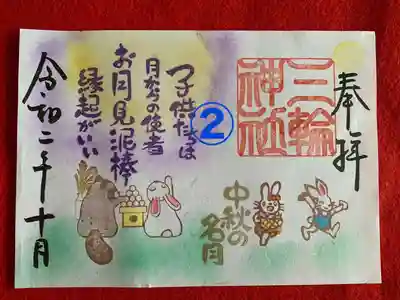 奉拝
三輪
神社
②
子供たちは
月からの使者
お月見泥棒
縁起がいい
中秋の
名月
令和二年十月